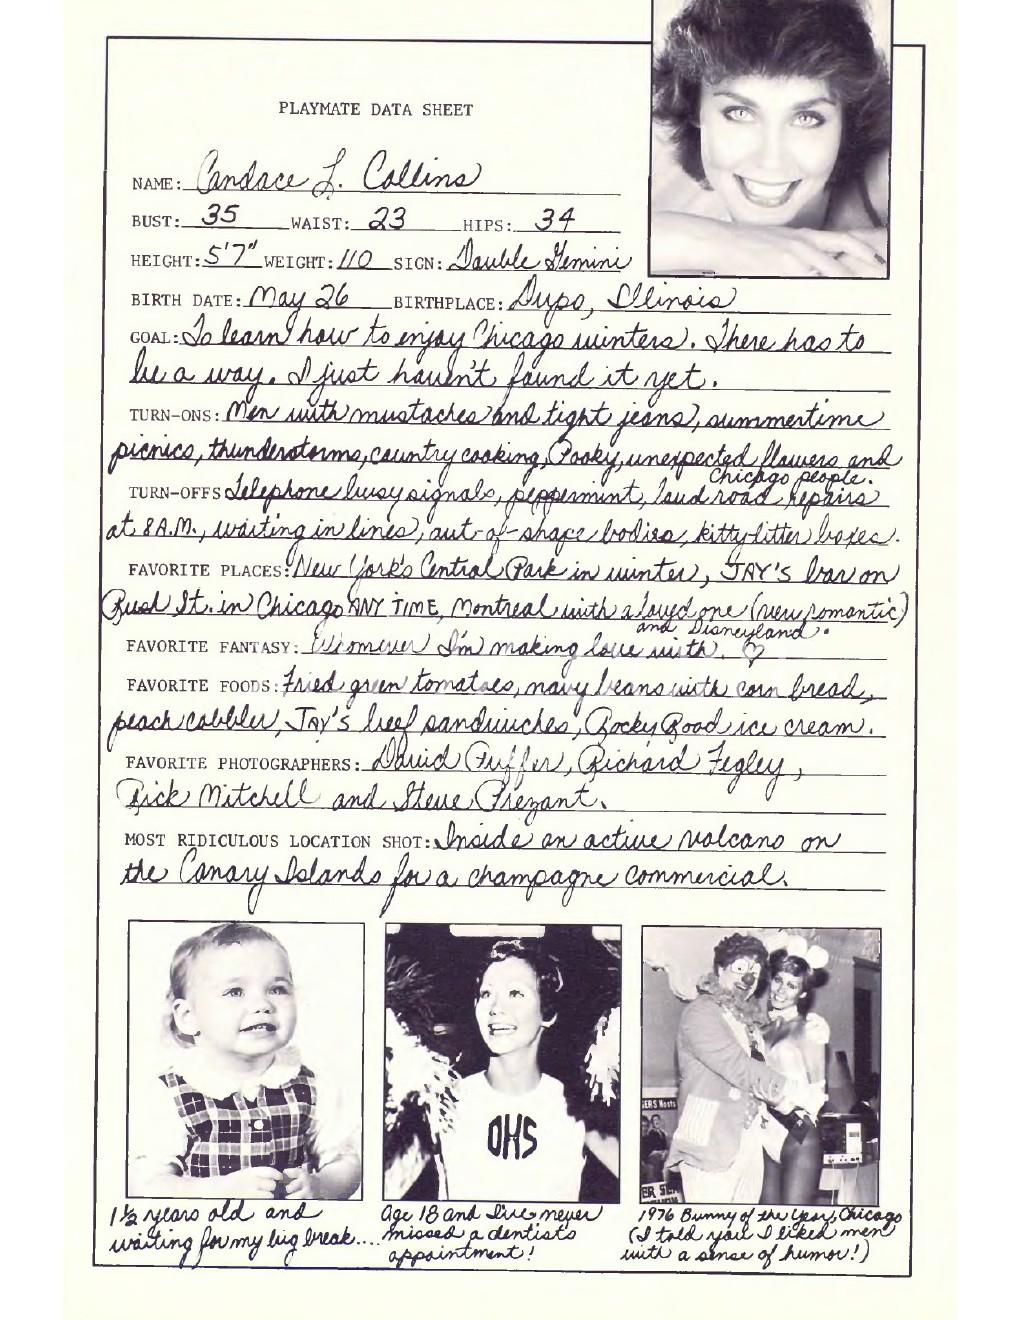 PLAYMATE DATA SHEET
NAME: Candace L. Collins
BUST: 35 WAIST: 23 HIPS: 34
HEIGHT: 5'7" WEIGHT: 110 SIGN: Double Gemini
BIRTH DATE: May 26 BIRTHPLACE: Dupo, Illinois
GOAL: To learn how to enjoy Chicago winters. There has to
be a way. I just haven't found it yet.
TURN-ONS: Men with mustaches and tight jeans, summertime
picnics, thunderstorms, country cooking, Pooky, unexpected flowers and
Chicago people.
TURN-OFFS Telephone busy signals, peppermint, loud road repairs
at 8 A.M., waiting in lines, out-of-shape bodies, kitty-litter boxes.
FAVORITE PLACES: New York's Central Park in winter, JAY'S bar on
Rush St. in Chicago ANY TIME, Montreal with a loved one (very romantic)
and Disneyland.
FAVORITE FANTASY: Whomever I'm making love with. ♡
FAVORITE FOODS: Fried green tomatoes, navy beans with corn bread,
peach cobbler, JAY'S beef sandwiches, Rocky Road ice cream.
FAVORITE PHOTOGRAPHERS: David Puffer, Richard Fegley,
Rick Mitchell and Steve Prezant.
MOST RIDICULOUS LOCATION SHOT: Inside an active volcano on
the Canary Islands for a champagne commercial.
OHS
ERS Hosts
1½ years old and
waiting for my big break....
Age 18 and I've never
missed a dentist's
appointment!
1976 Bunny of the Year, Chicago
(I told you I liked men
with a sense of humor!)